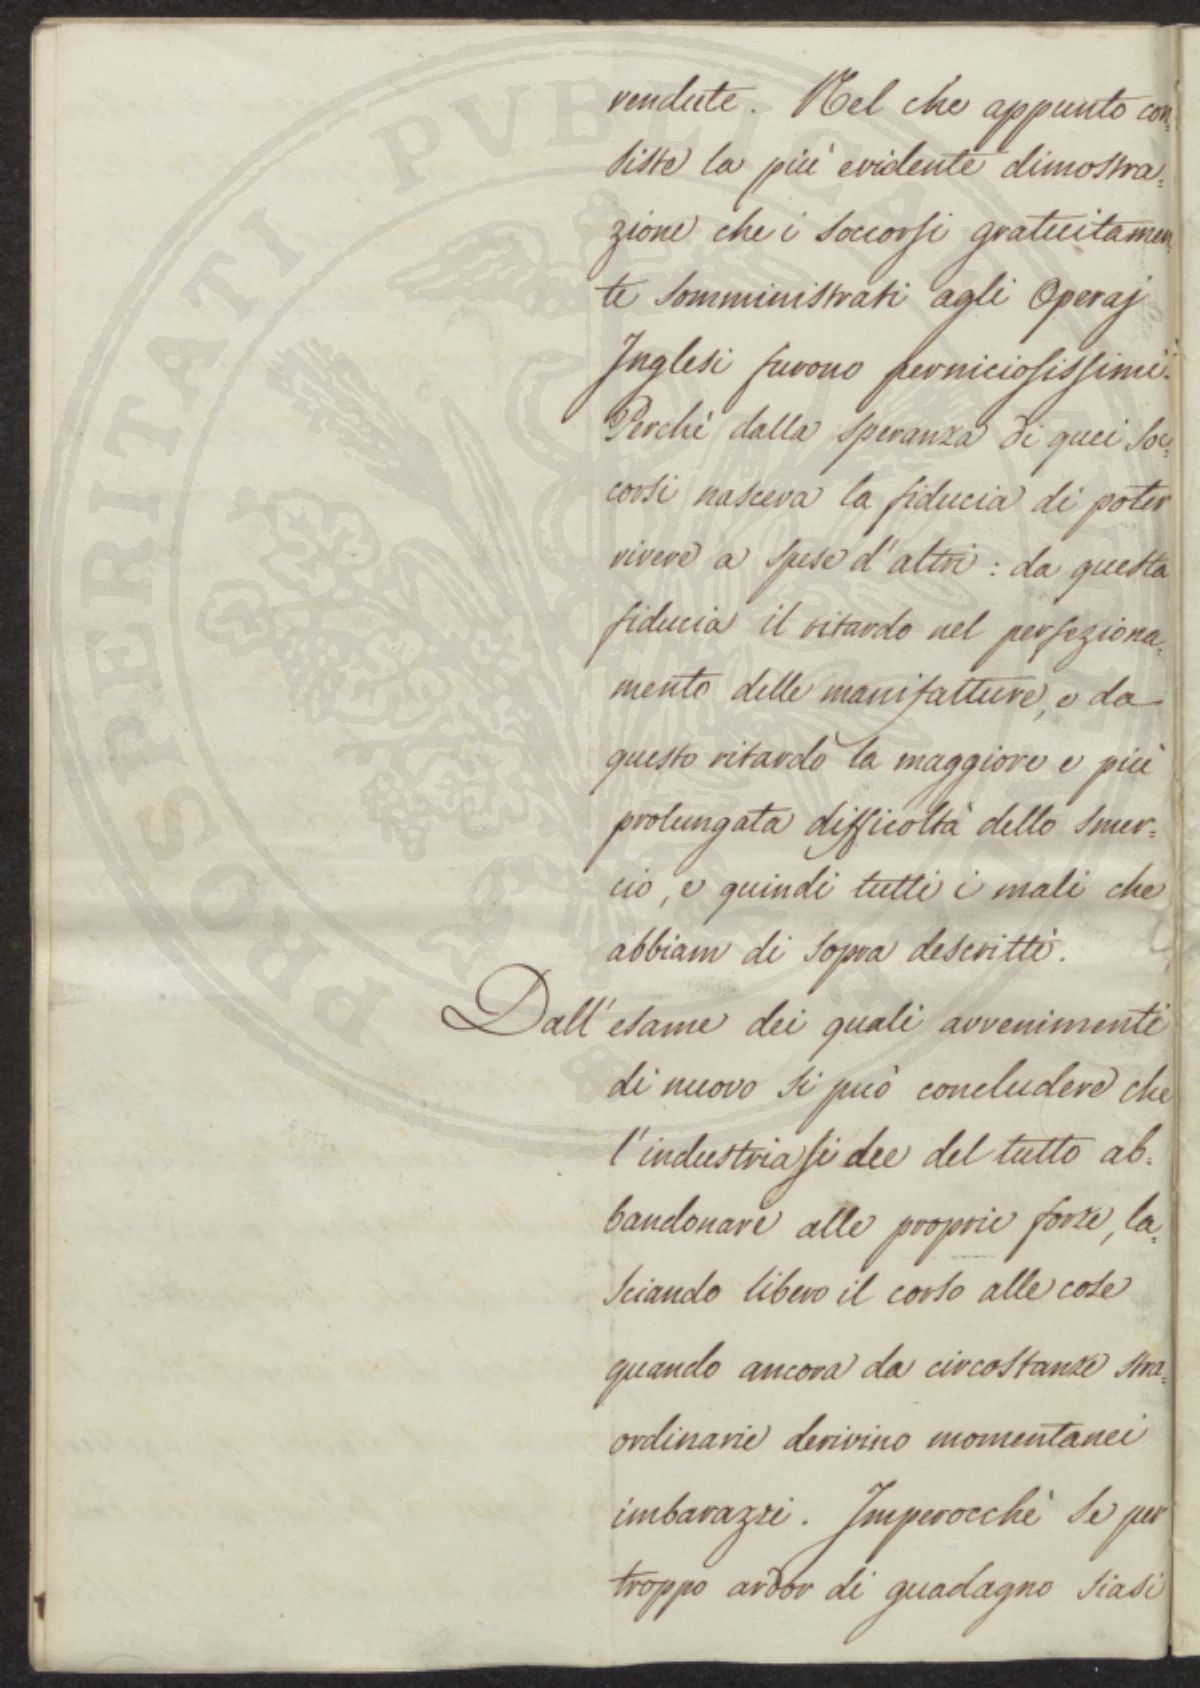 vendute. Nel che appunto con=
siste la più evidente dimostra=
zione che i soccorsi gratuitamen
te somministrati agli Operaj
Inglesi furono perniciosissimi.
Perchè dalla speranza di quei soc=
corsi nasceva la fiducia di poter
vivere a spese d'altri: da questa
fiducia il ritardo nel perfeziona=
mento delle manifatture, e da
questo ritardo la maggiore e più
prolungata difficoltà dello smer=
cio, e quindi tutti i mali che
abbiam di sopra descritti.
Dall'esame dei quali avvenimenti
di nuovo si può concludere che
l'industria si dee del tutto ab=
bandonare alle proprie forze, la=
sciando libero il corso alle cose
quando ancora da circostanze stra=
ordinarie derivino momentanei
imbarazzi. Imperocchè se per
troppo ardor di guadagno siasi
PROSPERITATI PUBLICAE